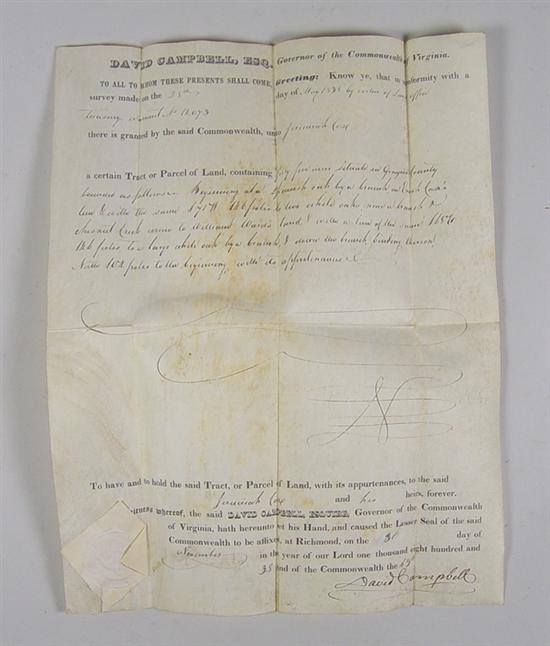 DAVID CAMPBELL, ESQ. Governor of the Commonwealth of Virginia.
TO ALL TO WHOM THESE PRESENTS SHALL COME, Greeting: Know ye, that in conformity with a
survey made on the 25th day of May 1838 by virtue of Land office
Treasury warrant No 13,073
there is granted by the said Commonwealth, unto Jeremiah Cox
a certain Tract or Parcel of Land, containing fifty five acres situate in Grayson County
bounded as follows Beginning at a Spanish oak by a branch in Cox's
line & with the same 166 poles to two white oaks near a branch of
Chesnut Creek corner to William Ward's land & with a line of the same
166 poles to a large white oak by a branch & down the branch
North 104 poles to the beginning with its appurtenances &
To have and to hold the said Tract, or Parcel of Land, with its appurtenances, to the said
Jeremiah Cox and his heirs, forever.
witness whereof, the said DAVID CAMPBELL, ESQUIRE, Governor of the Commonwealth
of Virginia, hath hereunto set his Hand, and caused the Lesser Seal of the said
Commonwealth to be affixed, at Richmond, on the day of
November in the year of our Lord one thousand eight hundred and
38 and of the Commonwealth the
David Campbell